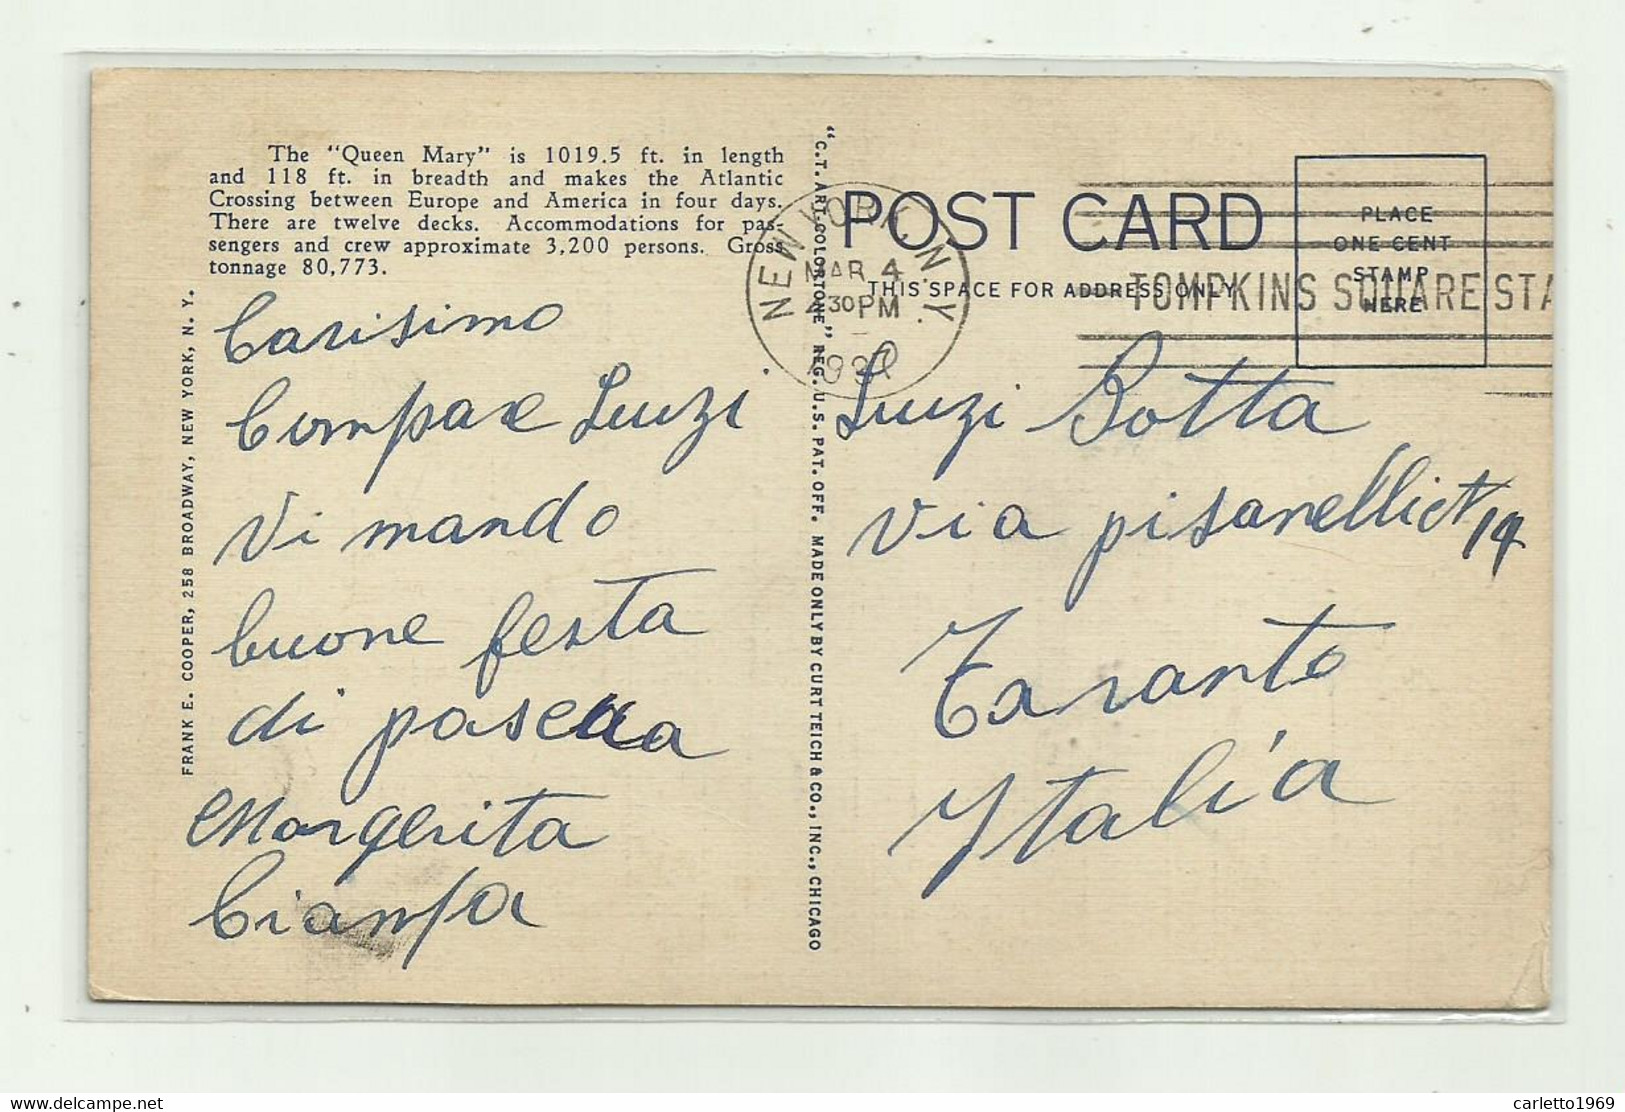 The "Queen Mary" is 1019.5 ft. in length
and 118 ft. in breadth and makes the Atlantic
Crossing between Europe and America in four days.
There are twelve decks. Accommodations for pas-
sengers and crew approximate 3,200 persons. Gross
tonnage 80,773.
Carisimo
Compare Luigi
Vi mando
buone festa
di pascua
Margerita
Ciampa
FRANK E. COOPER, 258 BROADWAY, NEW YORK, N. Y.
"C.T. ART-COLORTONE" REG. U.S. PAT. OFF. MADE ONLY BY CURT TEICH & CO., INC., CHICAGO
NEW YORK, N.Y.
MAR 4
430 PM
POST CARD
THIS SPACE FOR ADDRESS ONLY
TOMPKINS SQUARE STA
PLACE
ONE CENT
STAMP
HERE
Luigi Botta
Via pisanelli 19
Taranto
Italia
delcampe.net
carletto1969